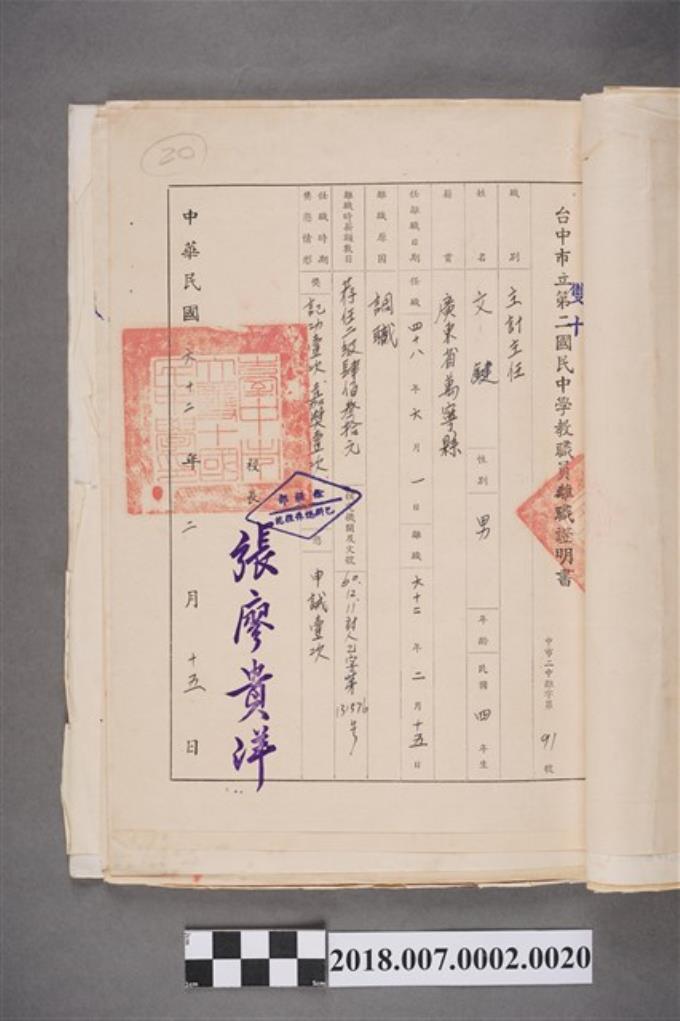 20
台中市立第二國民中學教職員離職證明書
雙十
中市二中離字第 91 號
職別 主計主任
姓名 文 鍵 性別 男 年齡 民國 四 年生
籍貫 廣東省萬寧縣
任離職日期 任職 四十八 年 六 月 一 日 離職 六十二 年 二 月 十五 日
離職原因 調職
離職時薪額數目 荐任二級肆佰叁拾元 機關及文號 60.12.11 財人乙字第 131576 號
任職時期獎懲情形 獎 記功壹次 嘉獎壹次 懲 申誡壹次
校長 張廖貴洋
中華民國 六十二 年 二 月 十五 日
2018.007.0002.0020